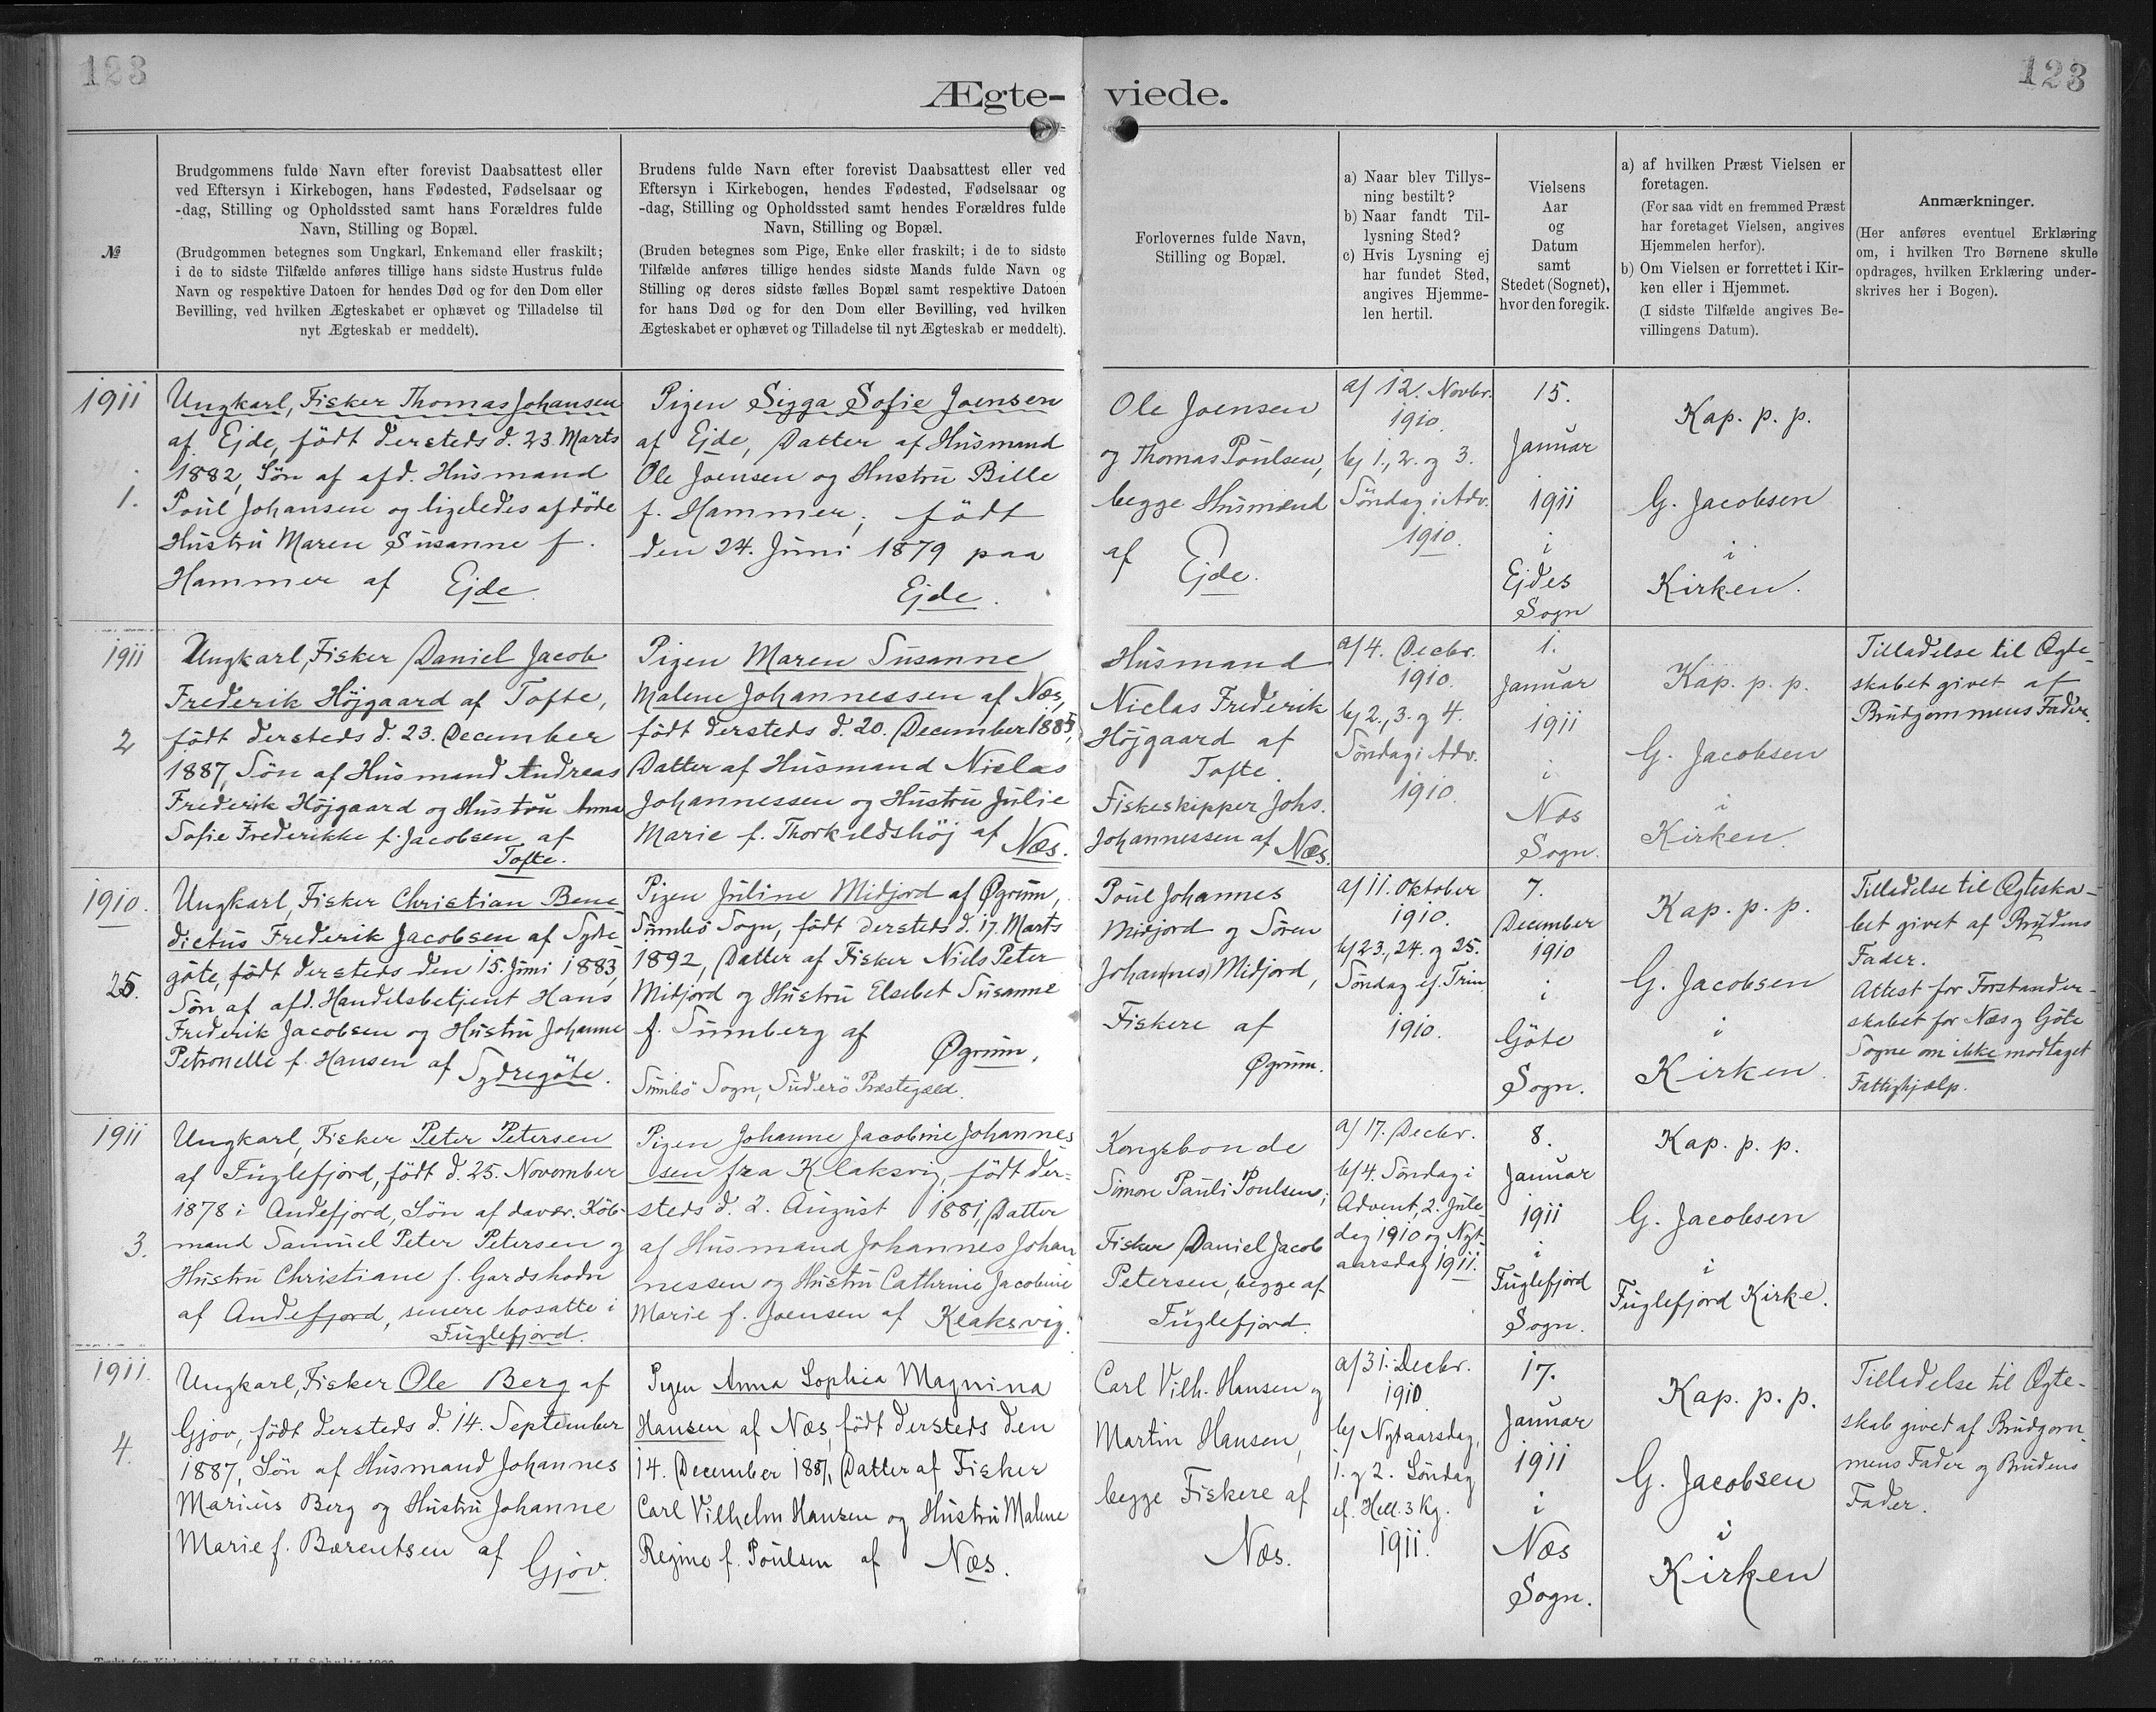 123
123
Ægte- viede.
№
Brudgommens fulde Navn efter forevist Daabsattest eller
ved Eftersyn i Kirkebogen, hans Fødested, Fødselsaar og
-dag, Stilling og Opholdssted samt hans Forældres fulde
Navn, Stilling og Bopæl.
(Brudgommen betegnes som Ungkarl, Enkemand eller fraskilt;
i de to sidste Tilfælde anføres tillige hans sidste Hustrus fulde
Navn og respektive Datoen for hendes Død og for den Dom eller
Bevilling, ved hvilken Ægteskabet er ophævet og Tilladelse til
nyt Ægteskab er meddelt).
Brudens fulde Navn efter forevist Daabsattest eller ved
Eftersyn i Kirkebogen, hendes Fødested, Fødselsaar og
-dag, Stilling og Opholdssted samt hendes Forældres fulde
Navn, Stilling og Bopæl.
(Bruden betegnes som Pige, Enke eller fraskilt; i de to sidste
Tilfælde anføres tillige hendes sidste Mands fulde Navn og
Stilling og deres sidste fælles Bopæl samt respektive Datoen
for hans Død og for den Dom eller Bevilling, ved hvilken
Ægteskabet er ophævet og Tilladelse til nyt Ægteskab er meddelt).
Forlovernes fulde Navn,
Stilling og Bopæl.
a) Naar blev Tillys-
ning bestilt?
b) Naar fandt Til-
lysning Sted?
c) Hvis Lysning ej
har fundet Sted,
angives Hjemme-
len hertil.
Vielsens
Aar
og
Datum
samt
Stedet (Sognet),
hvor den foregik.
a) af hvilken Præst Vielsen er
foretagen.
(For saa vidt en fremmed Præst
har foretaget Vielsen, angives
Hjemmelen herfor).
b) Om Vielsen er forrettet i Kir-
ken eller i Hjemmet.
(I sidste Tilfælde angives Be-
villingens Datum).
Anmærkninger.
(Her anføres eventuel Erklæring
om, i hvilken Tro Børnene skulle
opdrages, hvilken Erklæring under-
skrives her i Bogen).
1911
1.
Ungkarl, Fisker Thomas Johansen
af Ejde, födt dersteds d. 23. Marts
1882, Søn af afd. Husmand
Poul Johansen og ligeledes afdöde
Hustru Maren Susanne f.
Hammer af Ejde.
Pigen Sigga Sofie Joensen
af Ejde, Datter af Husmand
Ole Joensen og Hustru Bille
f. Hammer, födt
den 24. Juni 1879 paa
Ejde.
Ole Joensen
og Thomas Poulsen,
begge Husmænd
af Ejde.
a/ 12. Novbr.
1910.
b/ 1., 2. og 3.
Söndag i Adv.
1910.
15.
Januar
1911
i
Ejdes
Sogn
Kap. p. p.
G. Jacobsen
i
Kirken.
1911
2
Ungkarl, Fisker Daniel Jacob
Frederik Höjgaard af Tofte,
födt dersteds d. 23. December
1887, Søn af Husmand Andreas
Frederik Höjgaard og Hustru Anna
Sofie Frederikke f. Jacobsen af
Tofte.
Pigen Maren Susanne
Malene Johannessen af Næs,
födt dersteds d. 20. December 1885,
Datter af Husmand Niclas
Johannessen og Hustru Julie
Marie f. Thorkildshöj af Næs.
Husmand
Niclas Frederik
Höjgaard af
Tofte.
Fiskeskipper Johs.
Johannessen af Næs.
a/ 4. Decbr.
1910.
b/ 2., 3. og 4.
Söndag i Adv.
1910.
1.
Januar
1911
i
Næs
Sogn.
Kap. p. p.
G. Jacobsen
i
Kirken.
Tilladelse til Ægte-
skabet givet af
Brudgommens Fader.
1910.
25.
Ungkarl, Fisker Christian Bene
dictus Frederik Jacobsen af Sydre
göte, födt dersteds den 15. Juni 1883,
Søn af afd. Handelsbetjent Hans
Frederik Jacobsen og Hustru Johanne
Petronelle f. Hansen af Sydregöte.
Pigen Juline Midjord af Øgrum,
Sumbö Sogn, födt dersteds d. 17. Marts
1892, Datter af Fisker Niels Peter
Midjord og Hustru Elsebet Susanne
f. Sumberg af Øgrum,
Sumbö Sogn, Suderö Præstegæld.
Poul Johannes
Midjord og Sören
Johan(nes) Midjord,
Fiskere af
Øgrum.
a/ 11. Oktober
1910.
b/ 23., 24. og 25.
Söndag ef. Trin.
1910.
7.
December
1910
i
Göte
Sogn.
Kap. p. p.
G. Jacobsen
i
Kirken.
Tilladelse til Ægteska-
bet givet af Brudens
Fader.
Attest for Forstander-
skabet for Næs og Göte
Sogne om ikke modtaget
Fattighjælp.
1911
3.
Ungkarl, Fisker Peter Petersen
af Fuglefjord, födt d. 25. November
1878 i Andefjord, Søn af davær. Köb-
mand Samuel Peter Petersen og
Hustru Christiane f. Gardshodn
af Andefjord, senere bosatte i
Fuglefjord.
Pigen Johanne Jacobine Johannes
sen fra Klaksvig, födt der-
steds d. 2. August 1881, Datter
af Husmand Johannes Johan
nessen og Hustru Cathrine Jacobine
Marie f. Joensen af Klaksvig.
Kongsbonde
Simon Pauli Poulsen;
Fisker Daniel Jacob
Petersen, begge af
Fuglefjord.
a/ 17. Decbr.
b/ 4. Söndag i
Advent, 2. Jule-
dag 1910 og Nyt-
aarsdag 1911.
8.
Januar
1911
i
Fuglefjord
Sogn.
Kap. p. p.
G. Jacobsen
i
Fuglefjord Kirke.
1911.
4.
Ungkarl, Fisker Ole Berg af
Gjov, födt dersteds d. 14. September
1887, Søn af Husmand Johannes
Marius Berg og Hustru Johanne
Marie f. Bærentsen af Gjov.
Pigen Anna Sophia Magnina
Hansen af Næs, födt dersteds den
14. December 1887, Datter af Fisker
Carl Vilhelm Hansen og Hustru Malene
Regine f. Poulsen af Næs.
Carl Vilh. Hansen og
Martin Hansen,
begge Fiskere af
Næs.
a/ 31. Decbr.
1910
b/ Nytaarsdag,
1. og 2. Söndag
ef. Hell. 3 Kg.
1911.
17.
Januar
1911
i
Næs
Sogn.
Kap. p. p.
G. Jacobsen
i
Kirken
Tilladelse til Ægte-
skab givet af Brudgom-
mens Fader og Brudens
Fader.